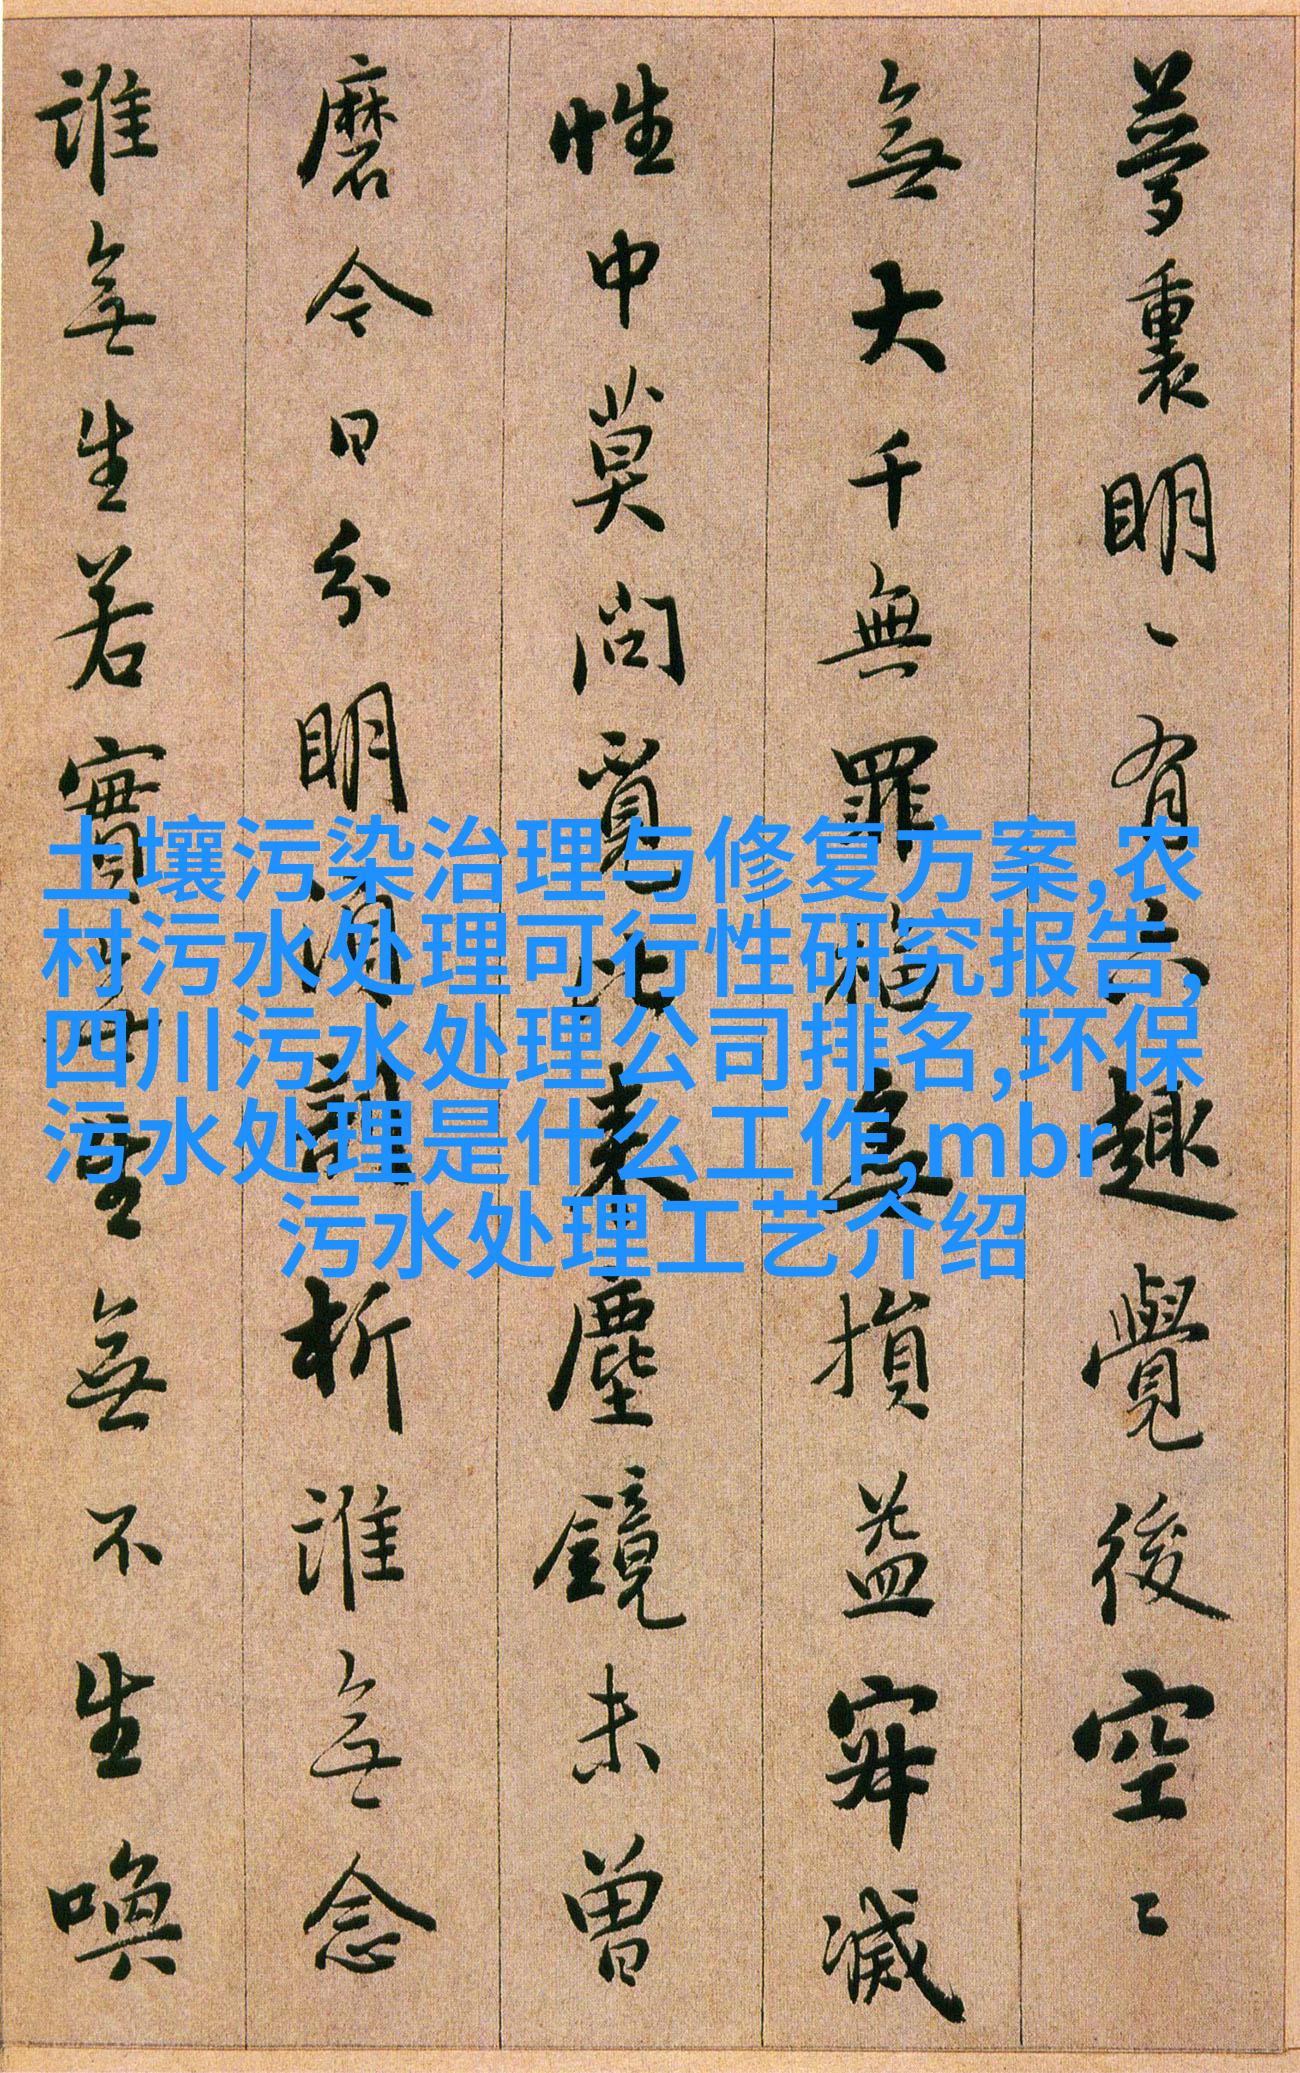 夢裏明〻有六趣覺後空〻
無大千無罪福無損益寂滅
性中莫問覓比来塵鏡未曾
磨今日分明須剖析誰無念
誰無生若實無生無不生喚
土壤污染治理与修复方案,农
村污水处理可行性研究报告,
四川污水处理公司排名,环保
污水处理是什么工作,mbr
污水处理工艺介绍